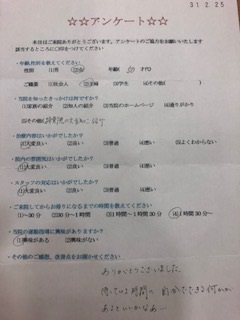 31.2.25
☆☆アンケート☆☆
本日はご来院ありがとうございます。アンケートのご協力をお願いいたします
該当するところに○印をつけてください
・年齢,性別を教えてください
性別 (1)男 (2)女 年齢( 50 )才代
ご職業 (1)社会人 (2)主婦 (3)学生 (4)その他( )
・当院を知ったきっかけは何ですか？
(1)家族の紹介 (2)知人の紹介 (3)当院のホームページ (4)通りがかり
(5)その他(
・治療内容はいかがでしたか？
(1)大変良い (2)良い (3)普通 (4)悪い (5)よくわからない
・院内の雰囲気はいかがでしたか？
(1)大変良い (2)良い (3)普通 (4)悪い
・スタッフの対応はいかがでしたか？
(1)大変良い (2)良い (3)普通 (4)悪い
・ご来院してからお帰りになるまでの時間を教えてください
(1)～30分 (2)30分～1時間 (3)1時間～1時間30分 (4)1時間30分～
・当院の運動指導に興味がありますか？
(1)興味がある (2)興味がない
・その他のご感想、改善点をお聞かせください
ありがとうございました。
待っている時間に 自分でできる何かが
あるといいかなぁ…